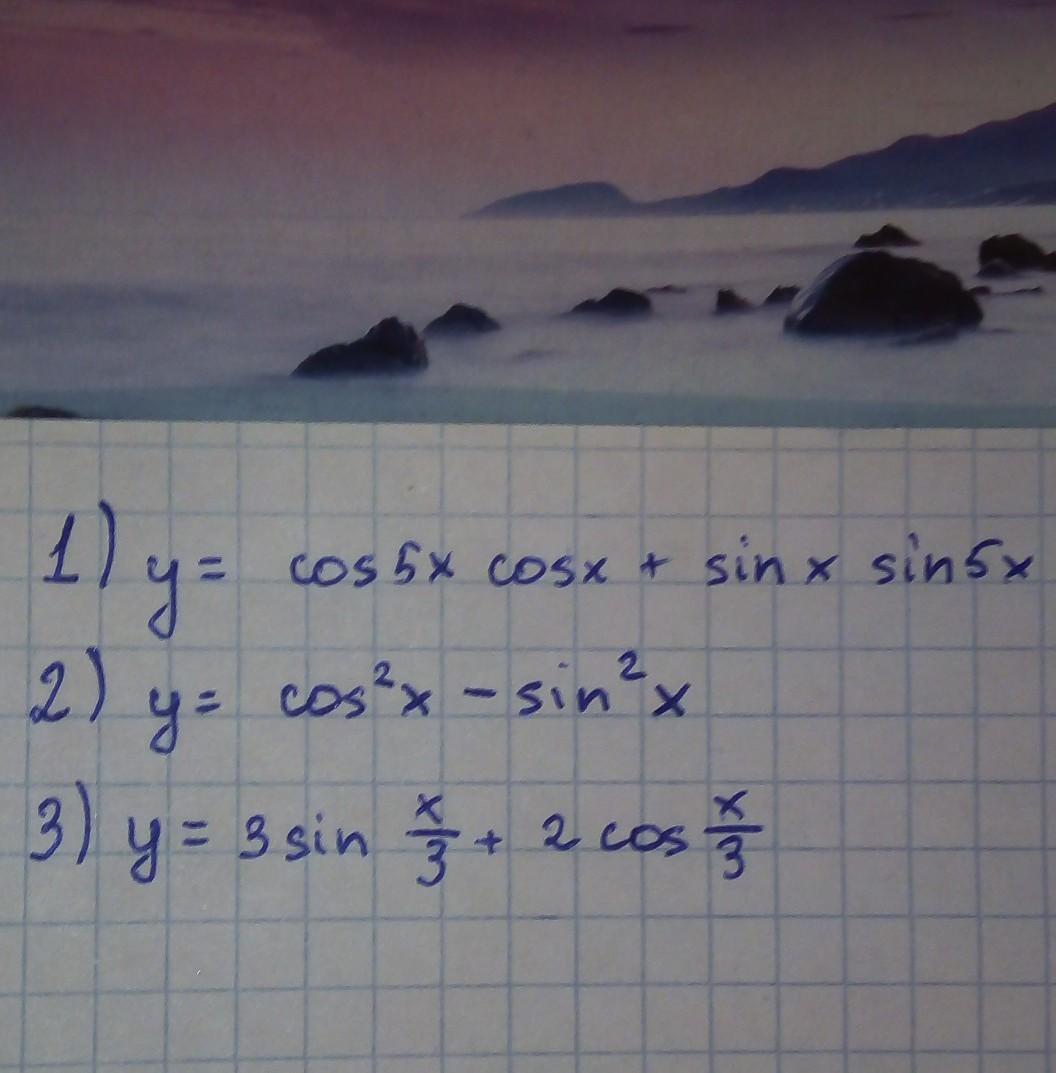 1) y = cos5x cosx + sin x sin5x
2) y = cos²x - sin²x
3) y = 3 sin x/3 + 2 cos x/3